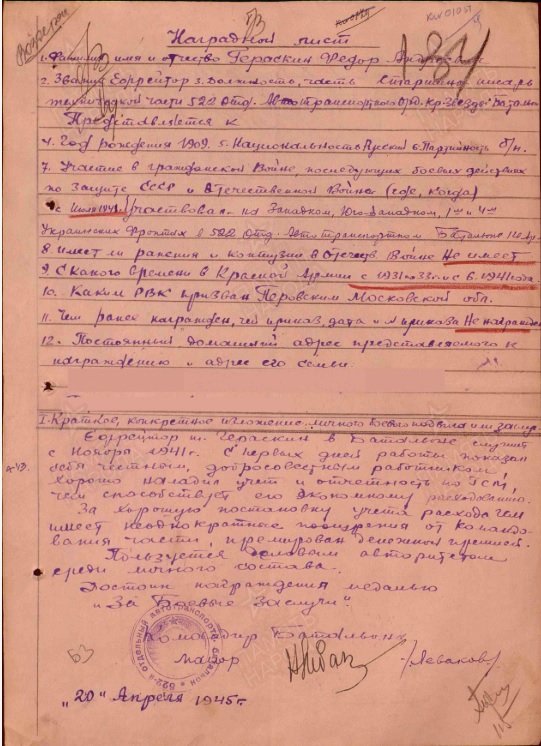 Наградной лист
1. Фамилия имя и отчество Гераскин Федор
2. Звание Ефрейтор 3. Должность, часть Старший писарь
части 522 Отд. Автотранспортного Орд. Кр. Звезды Батальона
Представляется к
4. Год рождения 1909. 5. Национальность Русский 6. Партийность б/п.
7. Участие в гражданской войне, последующих боевых действиях
по защите СССР и Отечественной Войны (где, когда)
с Июля 1941. Участвовал на Западном, Юго-Западном, 1ом и 4ом
Украинских Фронтах в 522 Отд. Автотранспортном Батальоне
8. имеет ли ранения и контузии в Отечеств. Войне Не имеет
9. С какого времени в Красной Армии с 1931 по 33 г. и с 6. 1941 года
10. Каким РВК призван Перовским Московской обл.
11. Чем ранее награжден, чей приказ, дата и № приказа Не награжден
12. Постоянный домашний адрес представляемого к
награждению и адрес его семьи.
I. Краткое, конкретное изложение личного боевого подвига или заслуг
Ефрейтор т. Гераскин в Батальоне служит
с Ноября 1941 г. С первых дней работы показал
себя честным, добросовестным работником,
Хорошо наладил учет и отчетность по ГСМ,
чем способствует его экономному расходованию.
За хорошую постановку учета расхода гсм
имеет неоднократные поощрения от Командо-
вания части, премирован денежной премией.
Пользуется деловым авторитетом
среди личного состава.
Достоин награждения медалью
"За Боевые Заслуги".
Командир Батальона
майор /Леваков/
522-й отдельный автотранспортн. батальон
"20" Апреля 1945 г.